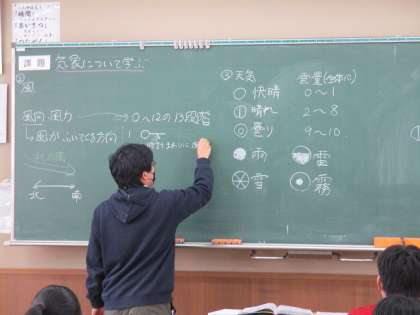 課題
気象について学ぶ
①風
風向・風力 → 0〜12の13段階
↳風がふいてくる方向
1
北の風
北 南
②天気 雲量(全体に)
○快晴 0〜1
晴れ 2〜8
◎曇り 9〜10
●雨
雪
雷
霧